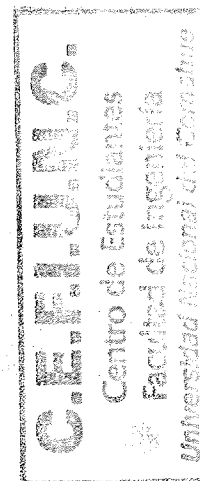 C.E.F.I.U.N.C.
Centro de Estudiantes
Facultad de Ingeniería
Universidad Nacional del Comahue